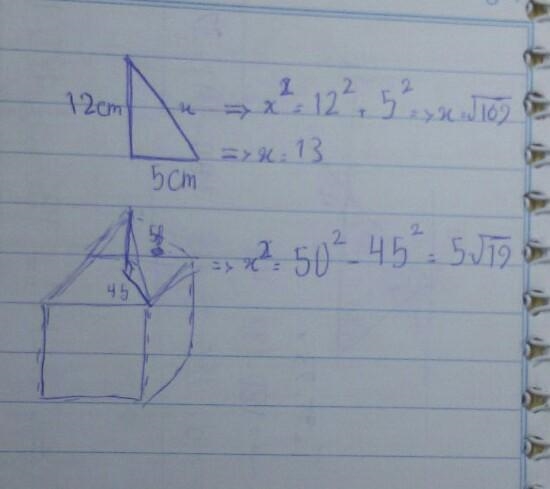 12cm x ⇒ x² = 12² + 5² ⇒ x = √169
⇒ x = 13
5cm
50
45 ⇒ x² = 50² - 45² = 5√19